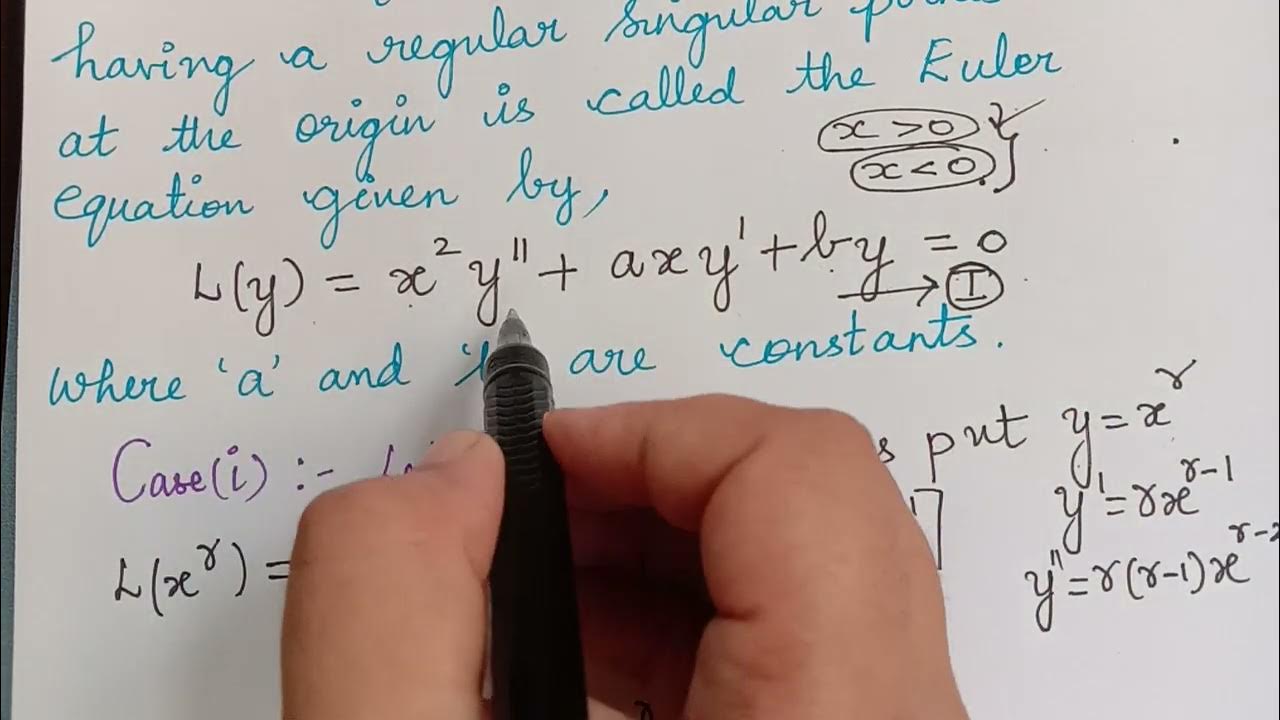 having a regular singular
at the origin is called the Euler
x > 0
x < 0
equation given by,
L(y) = x² y'' + a x y' + b y = 0
→ I
where 'a' and are constants.
Case(i) :-
put y = x^r
y' = r x^{r-1}
L(x^r) =
y'' = r(r-1) x^{r-2}